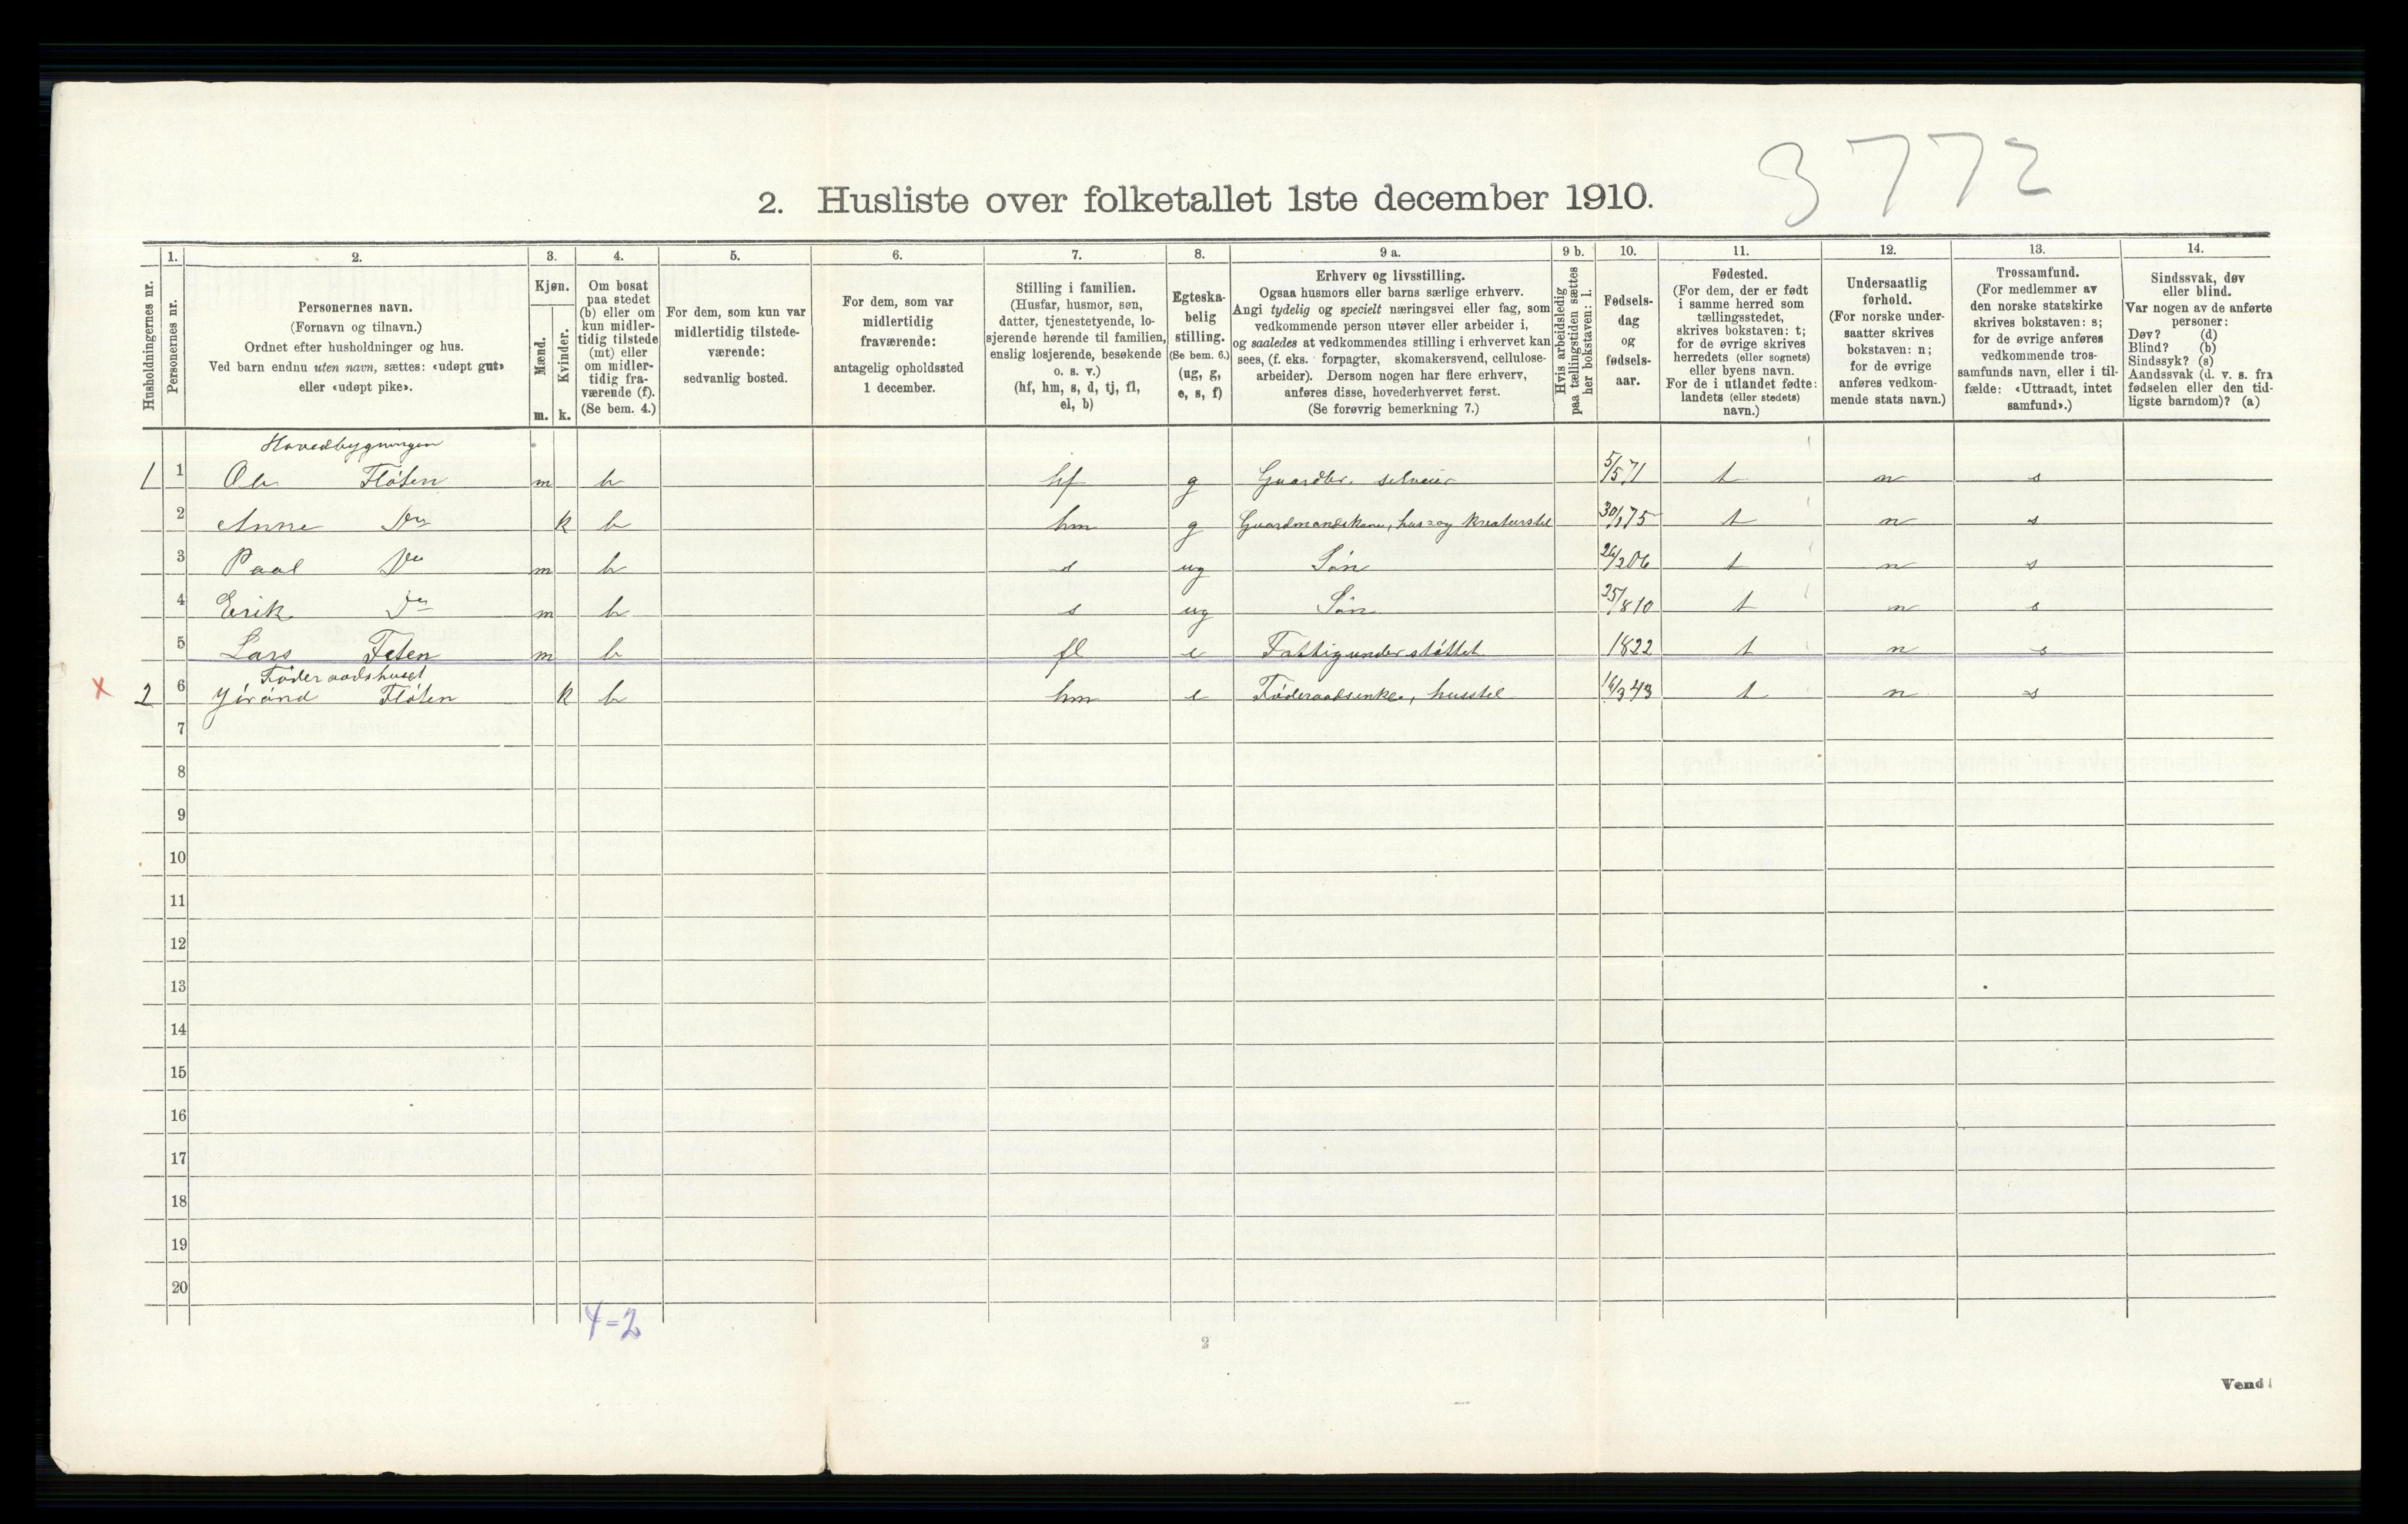 3772
2. Husliste over folketallet 1ste december 1910.
Husholdningernes nr.
1.
Personernes nr.
2.
Personernes navn.
(Fornavn og tilnavn.)
Ordnet efter husholdninger og hus.
Ved barn endnu uten navn, sættes: «udøpt gut»
eller «udøpt pike».
3.
Kjøn.
Mænd.
Kvinder.
m. k.
4.
Om bosat
paa stedet
(b) eller om
kun midler-
tidig tilstede
(mt) eller
om midler-
tidig fra-
værende (f).
(Se bem. 4.)
5.
For dem, som kun var
midlertidig tilstede-
værende:
sedvanlig bosted.
6.
For dem, som var
midlertidig
fraværende:
antagelig opholdssted
1 december.
7.
Stilling i familien.
(Husfar, husmor, søn,
datter, tjenestetyende, lo-
sjerende hørende til familien,
enslig losjerende, besøkende
o. s. v.)
(hf, hm, s, d, tj, fl,
el, b)
8.
Egteska-
belig
stilling.
(Se bem. 6.)
(ug, g,
e, s, f)
9 a.
Erhverv og livsstilling.
Ogsaa husmors eller barns særlige erhverv.
Angi tydelig og specielt næringsvei eller fag, som
vedkommende person utøver eller arbeider i,
og saaledes at vedkommendes stilling i erhvervet kan
sees, (f. eks. forpagter, skomakersvend, cellulose-
arbeider). Dersom nogen har flere erhverv,
anføres disse, hovederhvervet først.
(Se forøvrig bemerkning 7.)
9 b.
Hvis arbeidsledig
paa tællingstiden sættes
her bokstaven: l.
10.
Fødsels-
dag
og
fødsels-
aar.
11.
Fødested.
(For dem, der er født
i samme herred som
tællingsstedet,
skrives bokstaven: t;
for de øvrige skrives
herredets (eller sognets)
eller byens navn.
For de i utlandet fødte:
landets (eller stedets)
navn.)
12.
Undersaatlig
forhold.
(For norske under-
saatter skrives
bokstaven: n;
for de øvrige
anføres vedkom-
mende stats navn.)
13.
Trossamfund.
(For medlemmer av
den norske statskirke
skrives bokstaven: s;
for de øvrige anføres
vedkommende tros-
samfunds navn, eller i til-
fælde: «Uttraadt, intet
samfund».)
14.
Sindssvak, døv
eller blind.
Var nogen av de anførte
personer:
Døv? (d)
Blind? (b)
Sindssyk? (s)
Aandssvak (d. v. s. fra
fødselen eller den tid-
ligste barndom)? (a)
Hovedbygningen
1 1 Ole Fløten m b hf g Gaardbr. selveier 5/5 71 t n s
2 Anne Do k b hm g Gaardmandskone, hus- og kreaturstel 30/1 75 t n s
3 Paal Do m b s ug Søn 26/2 06 t n s
4 Erik Do m b s ug Søn 25/8 10 t n s
5 Lars Feten m b fl e Fattigunderstøttet 1822 t n s
Føderaadshuset
x 2 6 Jørånd Fløten k b hm e Føderaadsenke, husstel 16/3 43 t n s
7
8
9
10
11
12
13
14
15
16
17
18
19
20
4=2
2
Vend!